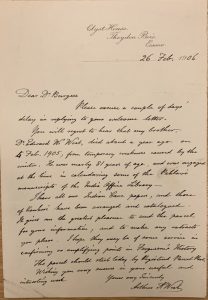 Clyst House,
Theydon Bois,
Essex
26 Feb. 1906
Dear Dr Burgess
Please excuse a couple of days'
delay in replying to your welcome letter.
You will regret to hear that my brother
Dr Edward W. West, died about a year ago on
4 Feb. 1905, from
caused by the
He was nearly 81 years of age, and was engaged
at the time in calendaring some of the Pahlavi
manuscripts of the India Office Library
I have all our Indian Cave papers, and those
of have been arranged and catalogued.
It gives me the greatest pleasure to send the parcel
for your information, and to make any extracts
you please. I hope they may be of some service in
confirming or amplifying points in History
The parcel should start today by Registered Parcel Post.
Wishing you every success in your useful and
interesting work.
Yours very sincerely,
Arthur A. West.